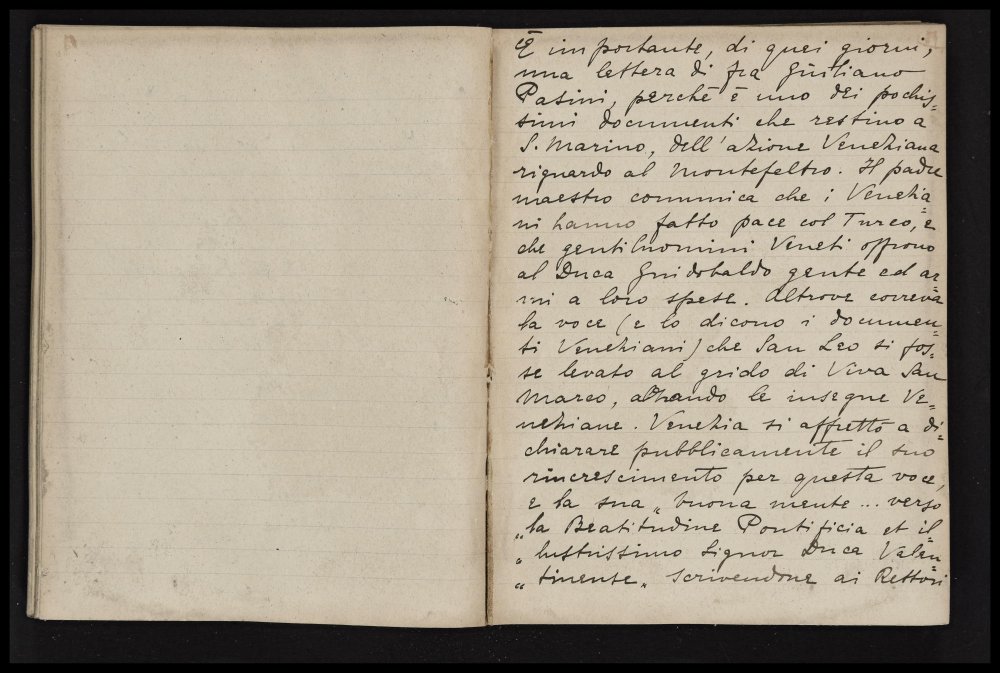 È importante, di quei giorni,
una lettera di fra Giuliano
Pasini, perchè è uno dei pochis=
simi documenti che restino a
S. Marino, dell'azione Veneziana
riguardo al Montefeltro. Il padre
maestro comunica che i Venezia=
ni hanno fatto pace col Turco, e
che gentiluomini Veneti offrono
al Duca Guidobaldo gente ed ar=
mi a loro spese. Altrove correva
la voce (e lo dicono i documen=
ti Veneziani) che San Leo si fos=
se levato al grido di Viva San
Marco, alzando le insegne Ve=
neziane. Venezia si affrettò a di=
chiarare pubblicamente il suo
rincrescimento per questa voce,
e la sua „ buona mente ... verso
„ la Beatitudine Pontificia et il=
„ lustrissimo Signor Duca Valen=
„ tinense „ scrivendone ai Rettori